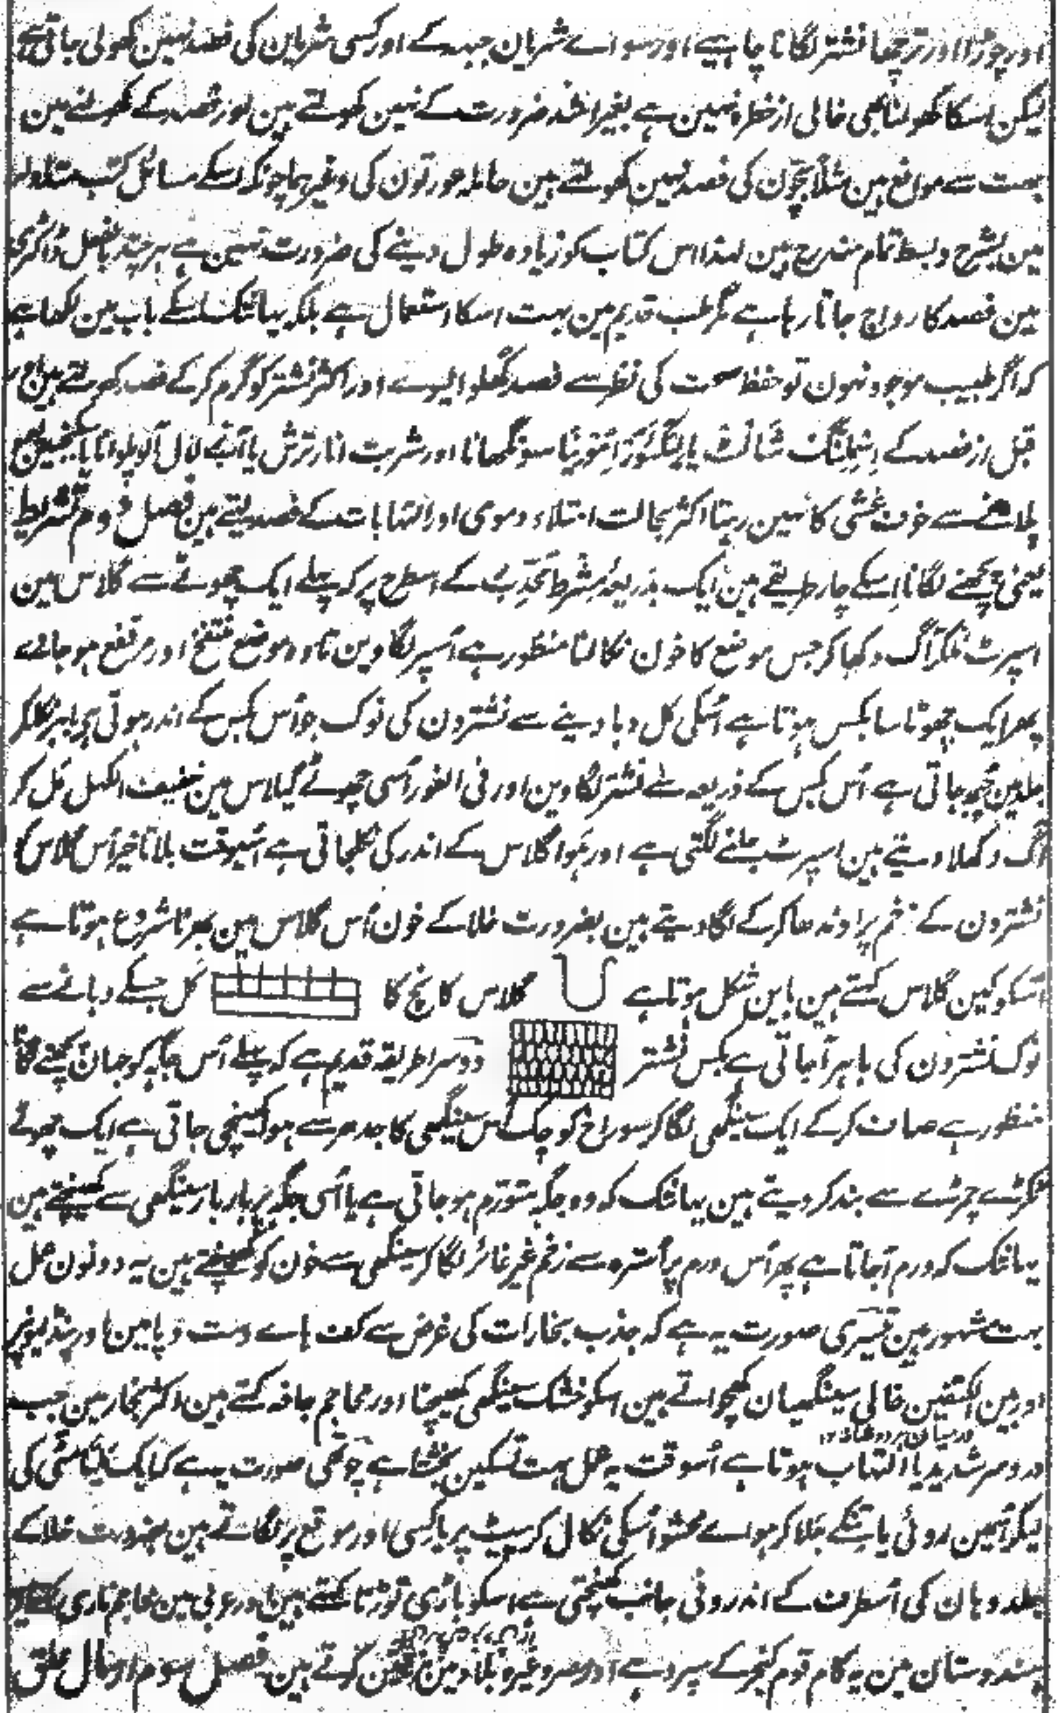 اور چوڑا اور ترچھا نشتر لگانا چاہیے اور سواے شریان جبہہ کے اور کسی شریان کی فصد نہین کھولی جاتی ہے
لیکن اسکا کھولنا بھی خالی از خطرہ نہین ہے بغیر اشد ضرورت کے نہین کھولتے ہین اور فصد کے کھولنے مین
بہت سے موانع ہین مثلاً بچّون کی فصد نہین کھولتے ہین حاملہ عورتون کی وغیرہا چونکہ اسکے مسائل کتب متداولہ
مین بشرح وبسط تمام مندرج ہین لہذا اس کتاب کو زیادہ طول دینے کی ضرورت نہین ہے ہر چند بالفعل ڈاکٹری
مین فصد کا رواج جاتا رہا ہے مگر طب قدیم مین بہت اسکا استعمال ہے بلکہ یہانتک اسکے باب مین لکھا ہے
کہ اگر طبیب موجود نہون تو حفظ صحت کی نظر سے فصد کھلوا لیوے اور اکثر نشتر کو گرم کر کے فصد کھولتے ہین اور
قبل از فصد کے اسمِلنگ سالٹ یا لِیکئور امونیا سونگھانا اور شربت انار ترش یا آب لال آلو پلوانا یا سکنجبین
پلانے سے خوف غشی کا نہین رہتا اکثر بحالت امتلاء دموی اور التہابات کے فصد لیتے ہین فصل دوم تشریط
یعنی پچھنے لگانا اسکے چار طریقے ہین ایک بذریعۂ شرط محدّب کے اسطرح پر کہ پہلے ایک چھوٹے سے گلاس مین
اسپرٹ ملکر آگ دکھا کر جس موضع کا خون نکالنا منظور ہے اسپر لگا دین تا وہ موضع منتفخ اور مرتفع ہو جائے
پھر ایک چھوٹا سا بکس ہوتا ہے اُسکی کل دبا دینے سے نشترون کی نوک جو اُس بکس کے اندر ہوتی ہی باہر نکلکر
جلد مین چبھ جاتی ہے اُس بکس کے ذریعہ سے نشتر لگا وین اور فی الفور اُسی چھوٹے گیلاس مین خفیف الکہل مَل کر
آگ دکھلا دیتے ہین اسپرٹ جلنے لگتی ہے اور ہَوا گلاس کے اندر کی نکلجاتی ہے اُسیوقت بلا تاخیر اُس گلاس کو
نشترون کے زخم پر اوندھا کر کے لگا دیتے ہین بضرورت خلا کے خون اُس گلاس مین بھرنا شروع ہوتا ہے
اسکو کپین گلاس کہتے ہین باین شکل ہوتا ہے گلاس کانچ کا کل جسکے دبانے سے
نوک نشترون کی باہر آجاتی ہے بکس نشتر دوسرا طریقہ قدیم ہے کہ پہلے اُس جگہ کو جہان پچھنے لگانا
منظور ہے صاف کر کے ایک سینگھی لگا کر سوراخ کو اس سینگھی کا جدھر سے ہوا کھینچی جاتی ہے ایک چھوٹے
ٹکڑے چمڑے سے بند کر دیتے ہین یہانتک کہ وہ جگہ متورّم ہو جاتی ہے یا اُسی جگہ پر بار بار سینگھی سے کھینچتے ہین
یہانتک کہ ورم آجاتا ہے پھر اُس ورم پر اُسترہ سے زخم غیر غائر لگا کر سینگھی سے خون کو کھینچتے ہین یہ دونون عمل
بہت مشہور ہین تیسری صورت یہ ہے کہ جذب بخارات کی غرض سے کف ہاے دست و پا مین اور پنڈلیونپر
اور بین الکتفین خالی سینگھیان کھچواتے ہین اسکو خشک سینگھی کھیچنا اور محاجم جافہ کہتے ہین اکثر بخار مین جب
درمیان ہر دو شانہ ۱۲
درد سر شدید یا التہاب ہوتا ہے اُسوقت یہ عمل بہت تسکین بخشتا ہے چوتھی صورت یہ ہے کہ ایک مٹی کی
لیکر اسمین روئی یا تنکے جلا کر ہواے محشو اُسکی نکال کر پیٹ پر یا کسی اور موقع پر لگاتے ہین بضرورت خلا کے
جلد وہان کی اُسطرف کے اندرونی جانب کھنچتی ہے اسکو باڈی توڑنا کہتے ہین اور عربی مین محاجم ناری
ہندوستان مین یہ کام قوم کنجر کے سپرد ہے اور مصر وغیرہ بلاد مین کرتے ہین فصل سوم ارسال علق